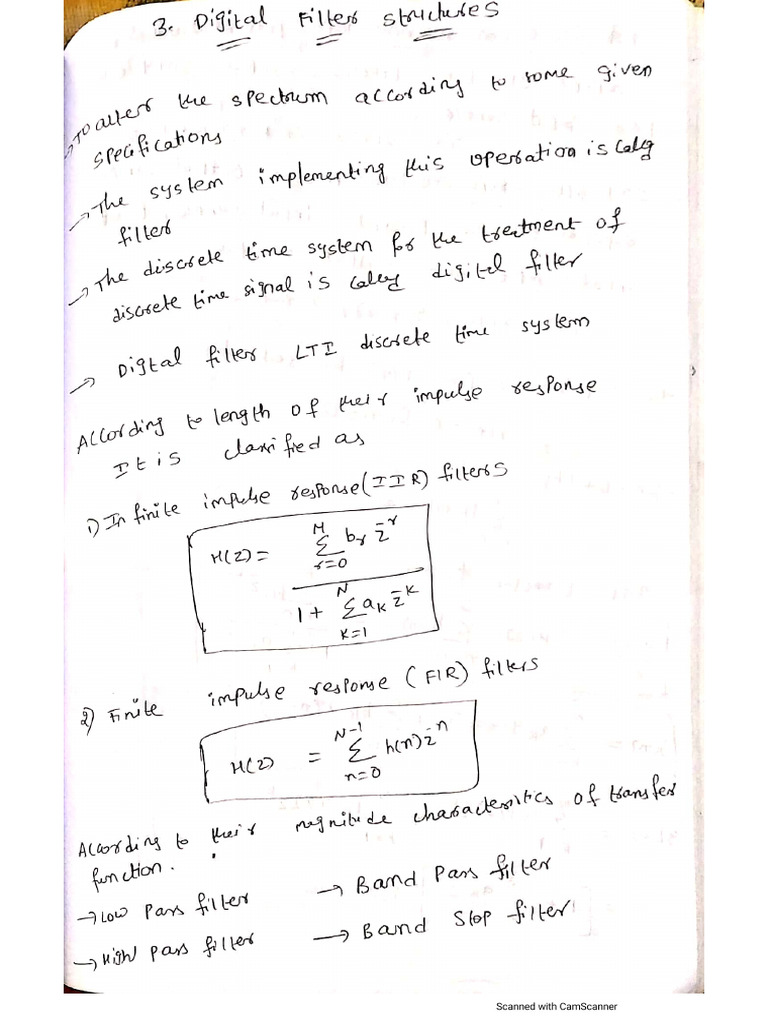 3. Digital Filter Structures
→ To alter the spectrum according to some given
specifications
→ The system implementing this operation is
filter
→ The discrete time system for the treatment of
discrete time signal is digital filter
→ Digtal filter LTI discrete time system
According to length of their impulse response
It is classified as
1) Infinite impulse response (IIR) filters
M
H(Z) = Σ bᵣ z⁻ʳ
r=0
N
1 + Σ aₖ z⁻ᵏ
k=1
2) Finite impulse response (FIR) filters
N-1
H(Z) = Σ h(n) z⁻ⁿ
n=0
According to their magnitude characteristics of transfer
function.
→ Low pass filter → Band Pass filter
→ High pass filter → Band Stop filter
Scanned with CamScanner